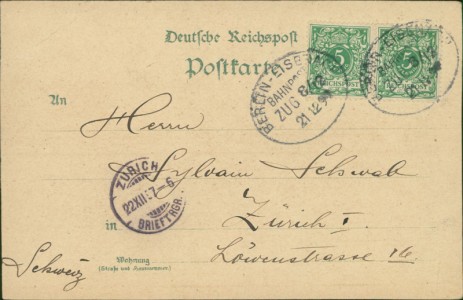 Deutsche Reichspost
Postkarte
5 5
REICHSPOST
BERLIN-EISENACH
BAHNPOST
ZUG
21 12
An
Herrn
Sylvain Schwab
ZÜRICH
22.XII.97-6
BRIEFTRGR.
in Zürich I.
Löwenstrasse 16
Wohnung
(Straße und Hausnummer)
Schweiz